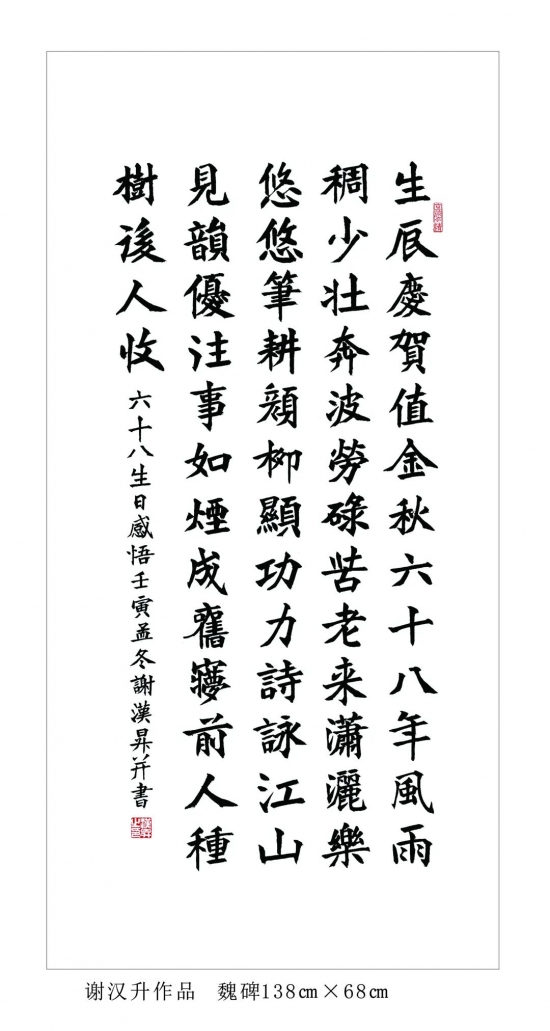 生辰慶賀值金秋六十八年風雨
稠少壯奔波勞碌苦老来瀟灑樂
悠悠筆耕顏柳顯功力詩詠江山
見韻優往事如煙成舊夢前人種
樹後人收
六十八生日感悟壬寅孟冬謝漢昇并書
谢汉升作品 魏碑138㎝×68㎝